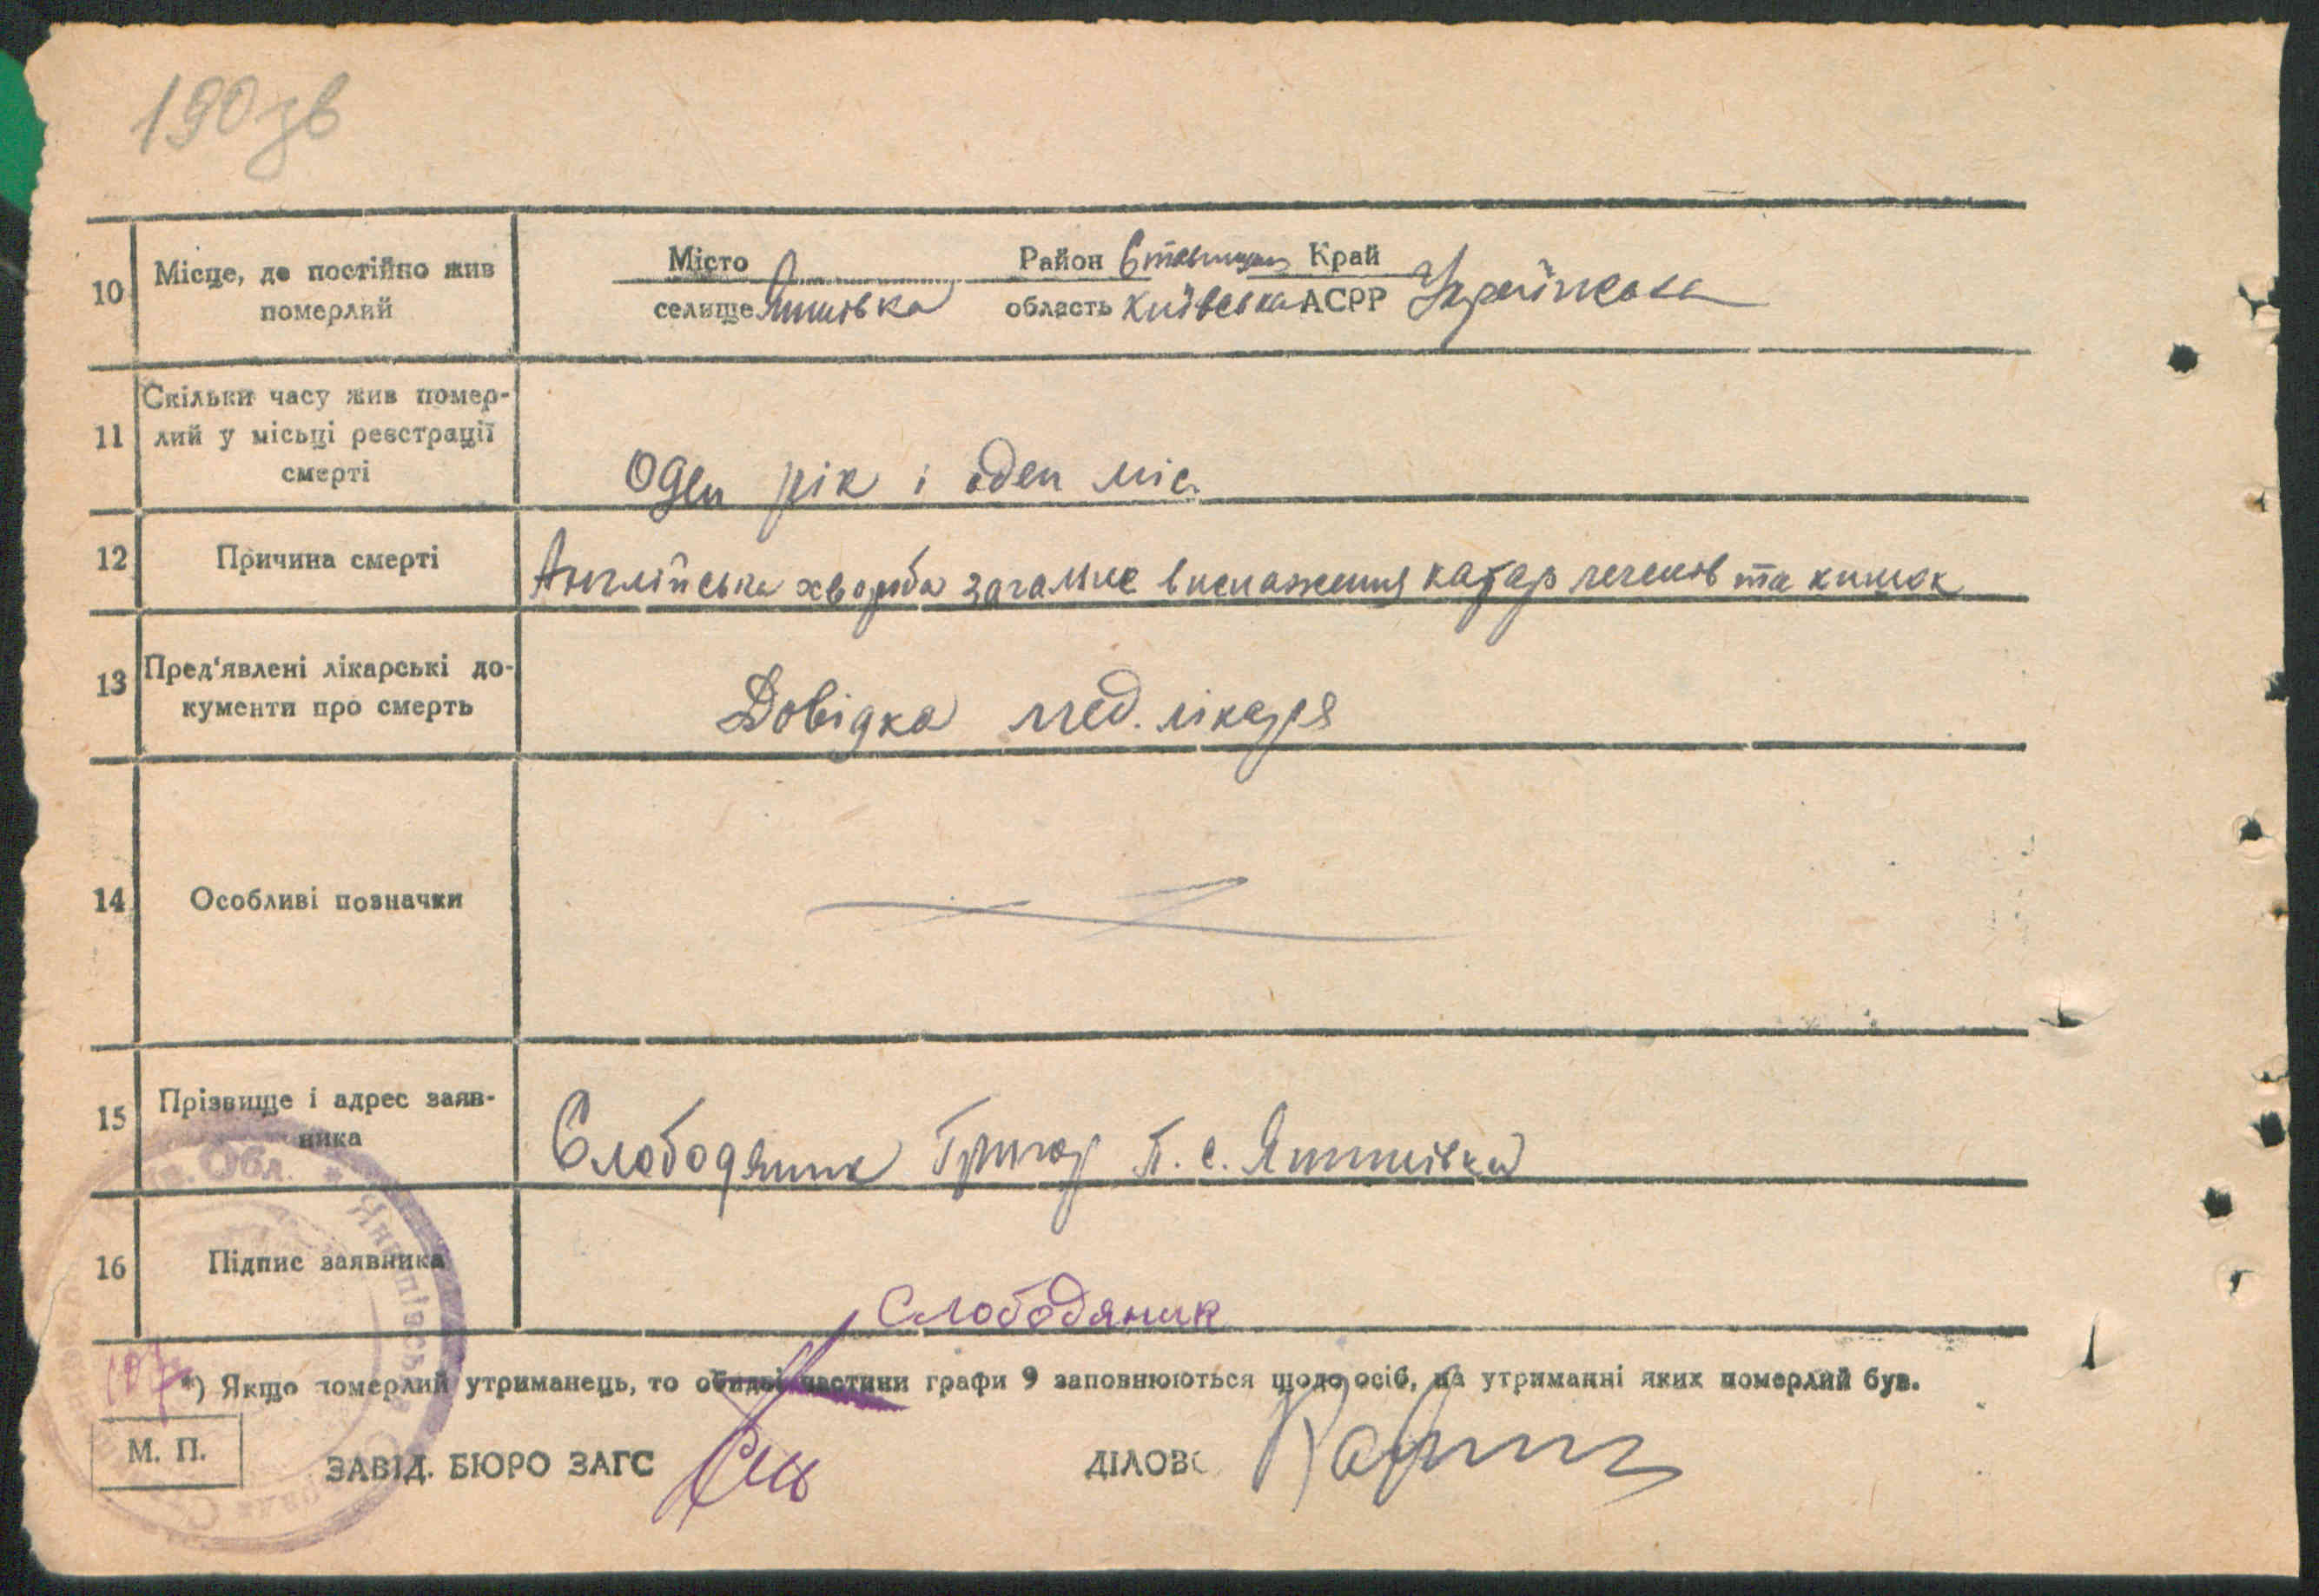 190зв
10 Місце, де постійно жив померлий
Місто Район Ставищен Край
селище область Київська АСРР Українська
11 Скільки часу жив помер-
лий у місьці реєстрації
смерті
Оден рік і оден міс.
12 Причина смерті
Англійська хвороба загальне виснаження катар легенів та кишок
13 Пред'явлені лікарські до-
кументи про смерть
Довідка мед. лікаря
14 Особливі позначки
15 Прізвище і адрес заяв-
ника
Слободяник Григор П. с. Яшшівка
16 Підпис заявника
Слободяник
*) Якщо померлий утриманець, то обидві частини графи 9 заповнюються щодо осіб, на утриманні яких померлий був.
М. П.
ЗАВІД. БЮРО ЗАГС
ДІЛОВ
Обл.